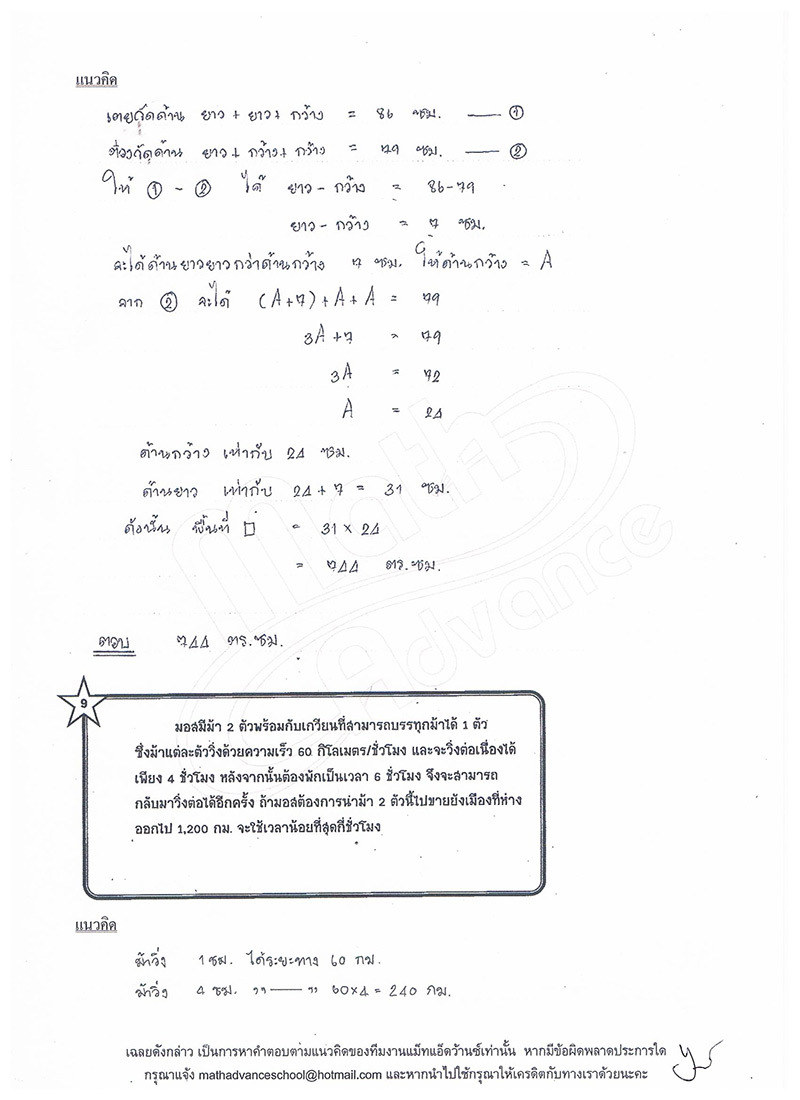 แนวคิด
เตยตัดด้าน ยาว + ยาว + กว้าง = 86 ซม. —— ①
ต่องตัดด้าน ยาว + กว้าง + กว้าง = 79 ซม. —— ②
ให้ ① - ② ได้ ยาว - กว้าง = 86-79
ยาว - กว้าง = 7 ซม.
จะได้ด้านยาวยาวกว่าด้านกว้าง 7 ซม. ให้ด้านกว้าง = A
จาก ② จะได้ (A+7)+A+A = 79
3A+7 = 79
3A = 72
A = 24
ด้านกว้าง เท่ากับ 24 ซม.
ด้านยาว เท่ากับ 24 + 7 = 31 ซม.
ดังนั้น พื้นที่ □ = 31 × 24
= 744 ตร.ซม.
ตอบ 744 ตร.ซม.
Math
Advance
9
มอสมีม้า 2 ตัวพร้อมกับเกวียนที่สามารถบรรทุกม้าได้ 1 ตัว
ซึ่งม้าแต่ละตัววิ่งด้วยความเร็ว 60 กิโลเมตร/ชั่วโมง และจะวิ่งต่อเนื่องได้
เพียง 4 ชั่วโมง หลังจากนั้นต้องพักเป็นเวลา 6 ชั่วโมง จึงจะสามารถ
กลับมาวิ่งต่อได้อีกครั้ง ถ้ามอสต้องการนำม้า 2 ตัวนี้ไปขายยังเมืองที่ห่าง
ออกไป 1,200 กม. จะใช้เวลาน้อยที่สุดกี่ชั่วโมง
แนวคิด
ม้าวิ่ง 1 ชม. ได้ระยะทาง 60 กม.
ม้าวิ่ง 4 ชม. ,, —— ,, 60×4 = 240 กม.
เฉลยดังกล่าว เป็นการหาคำตอบตามแนวคิดของทีมงานแม็ทแอ็ดว้านซ์เท่านั้น หากมีข้อผิดพลาดประการใด
กรุณาแจ้ง mathadvanceschool@hotmail.com และหากนำไปใช้กรุณาให้เครดิตกับทางเราด้วยนะคะ